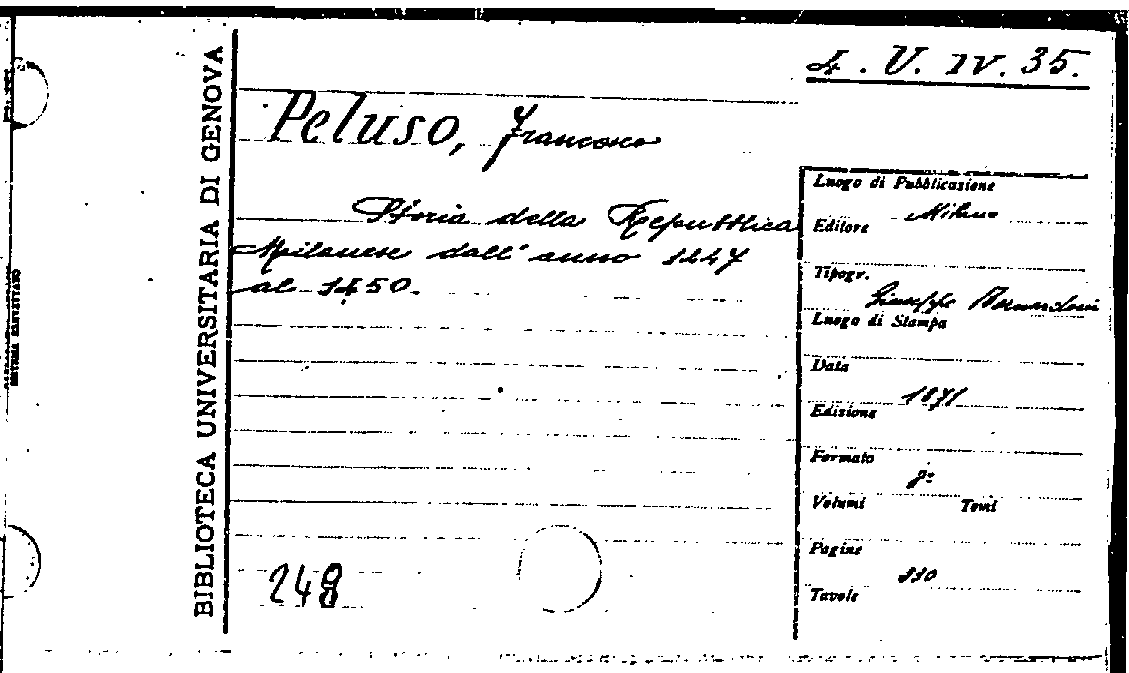 BIBLIOTECA UNIVERSITARIA DI GENOVA
4. V. IV. 35.
Peluso, Francesco
Storia della Repubblica
Milanese dall'anno 1447
al 1450.
248
Luogo di Pubblicazione
Milano
Editore
Tipogr.
Giuseppe Bernardoni
Luogo di Stampa
Data
1871
Edizione
Formato
8º
Volumi Tomi
Pagine
330
Tavole